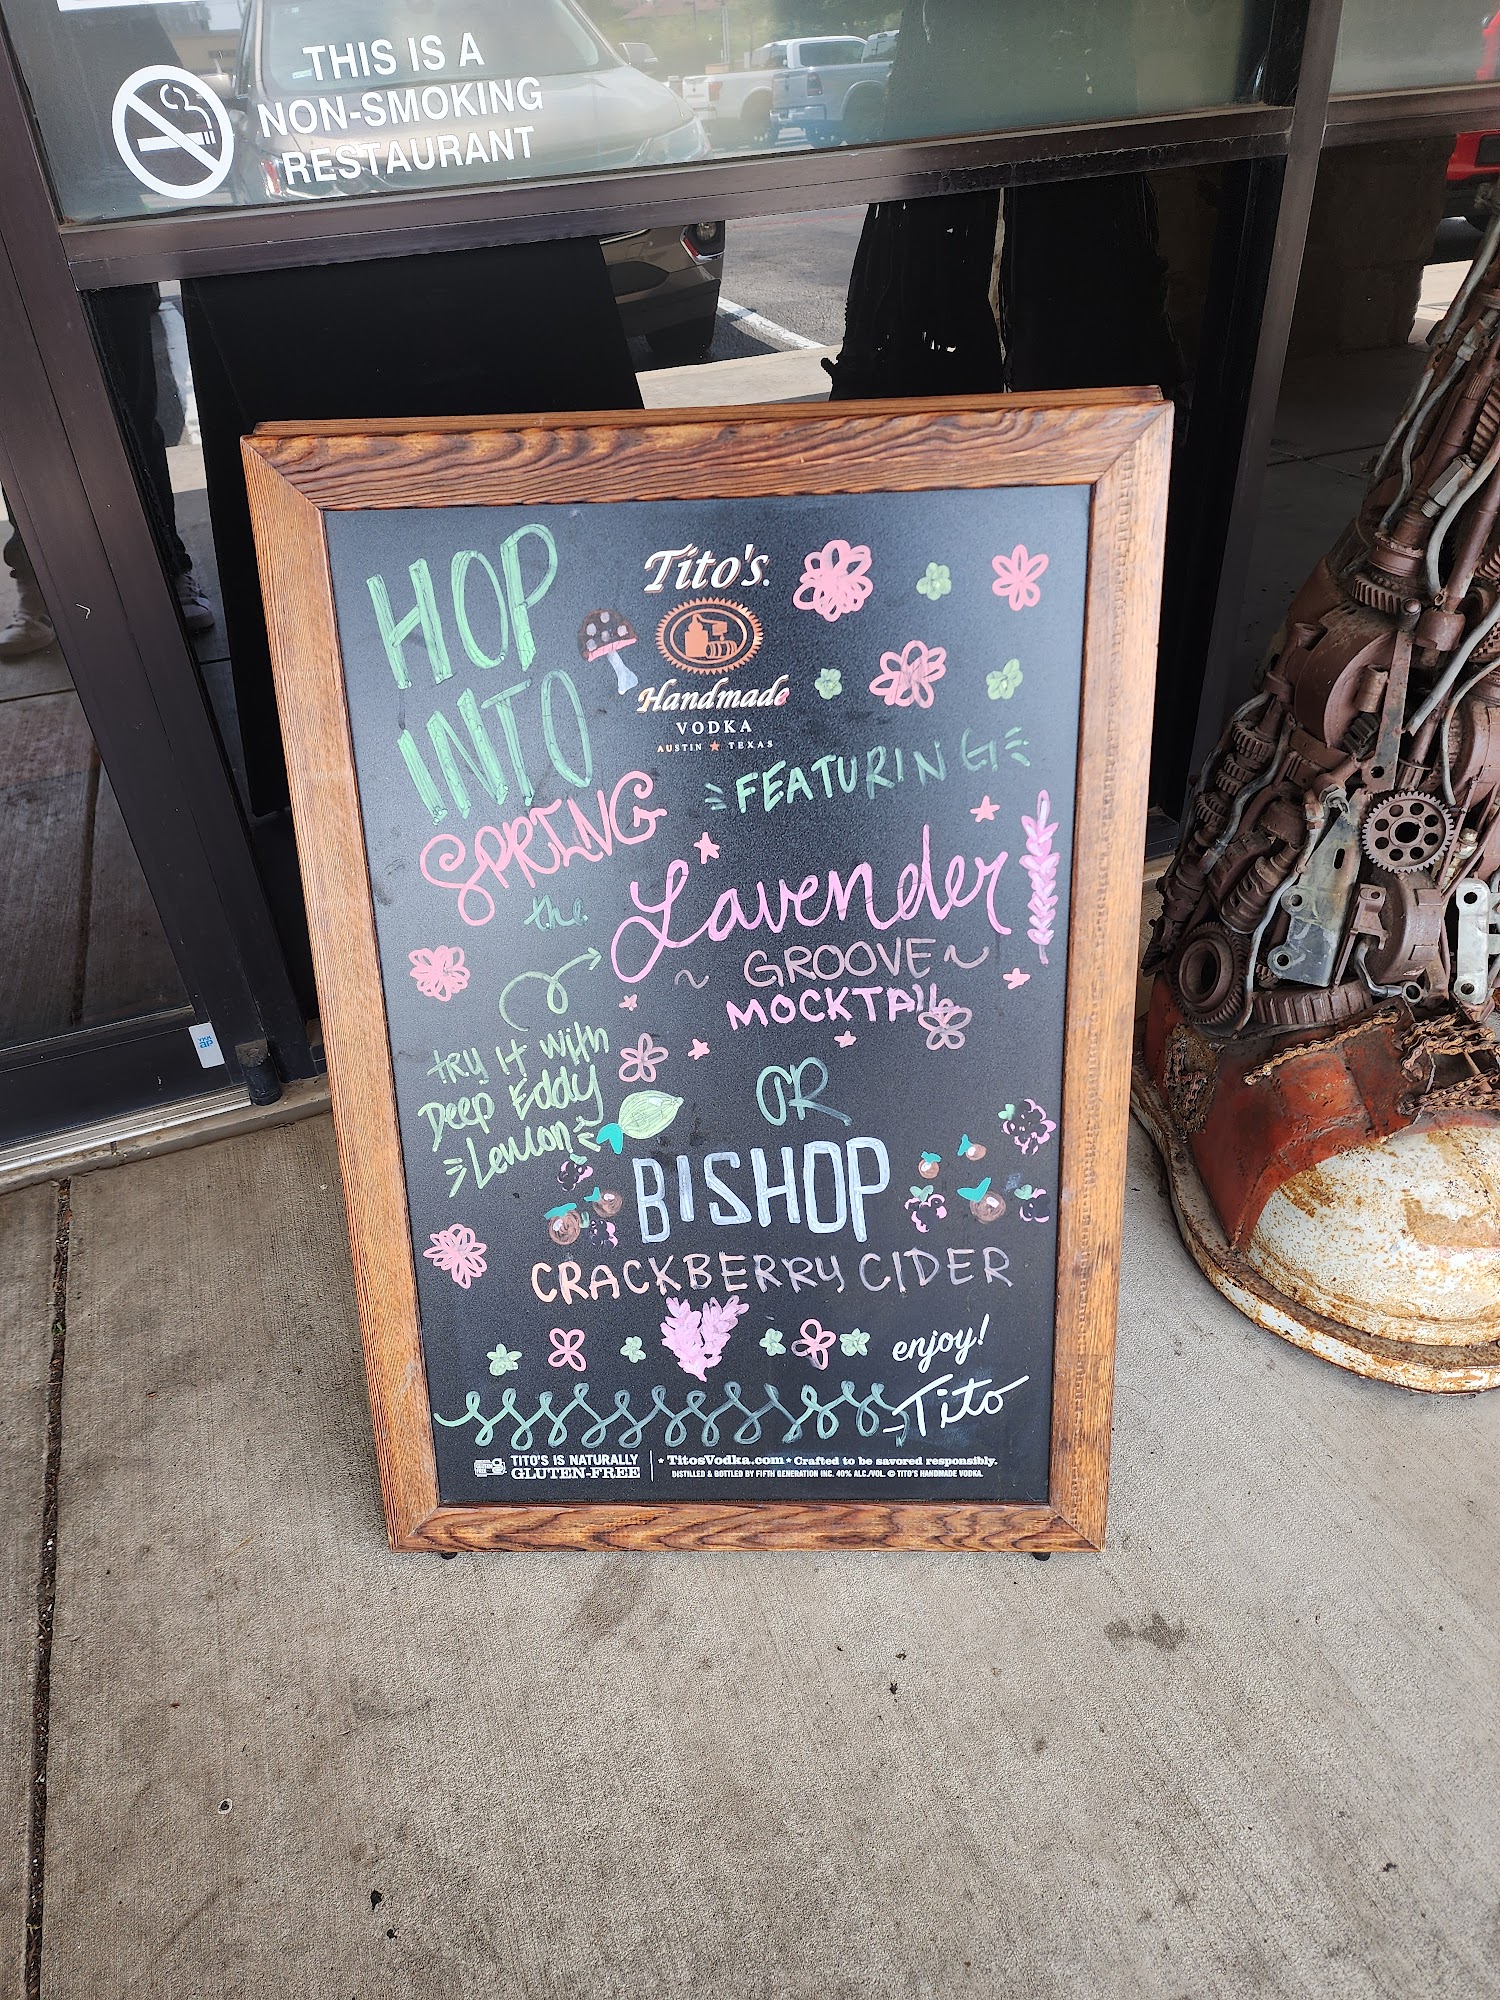 THIS IS A
NON-SMOKING
RESTAURANT
HOP
INTO
SPRING
Tito's
Handmade
VODKA
AUSTIN ★ TEXAS
FEATURING
the
Lavender
~ GROOVE ~
MOCKTAIL
try it with
Deep Eddy
Lemon
OR
BISHOP
CRACKBERRY CIDER
enjoy!
-Tito
TITO'S IS NATURALLY
GLUTEN-FREE
* TitosVodka.com * Crafted to be savored responsibly.
DISTILLED & BOTTLED BY FIFTH GENERATION INC. 40% ALC./VOL. © TITO'S HANDMADE VODKA.